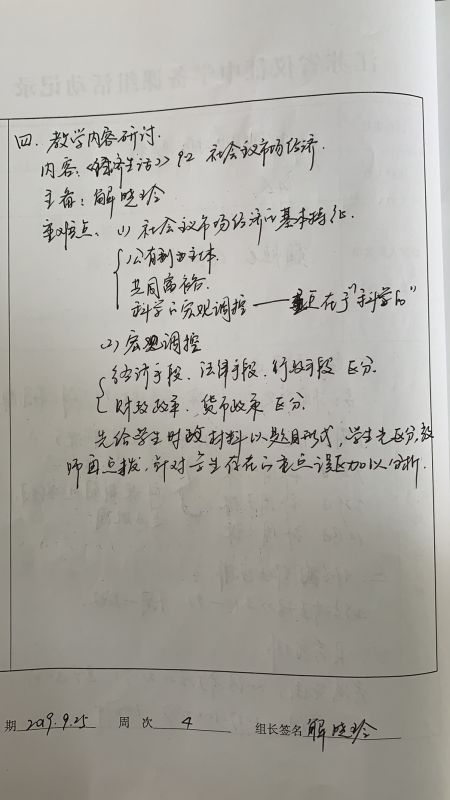 四. 教学内容研讨.
内容:《经济生活》9.2 社会主义市场经济.
主备:解晓玲
重难点、(1) 社会主义市场经济的基本特征.
公有制为主体.
共同富裕.
科学的宏观调控——重在于"科学的"
(2) 宏观调控
经济手段、法律手段、行政手段 区分.
财政政策、货币政策 区分.
先给学生时政材料以题目形式,学生先区分,教
师再点拨,针对学生存在的重点误区加以分析.
期 2019.9.25 周 次 4 组长签名 解晓玲